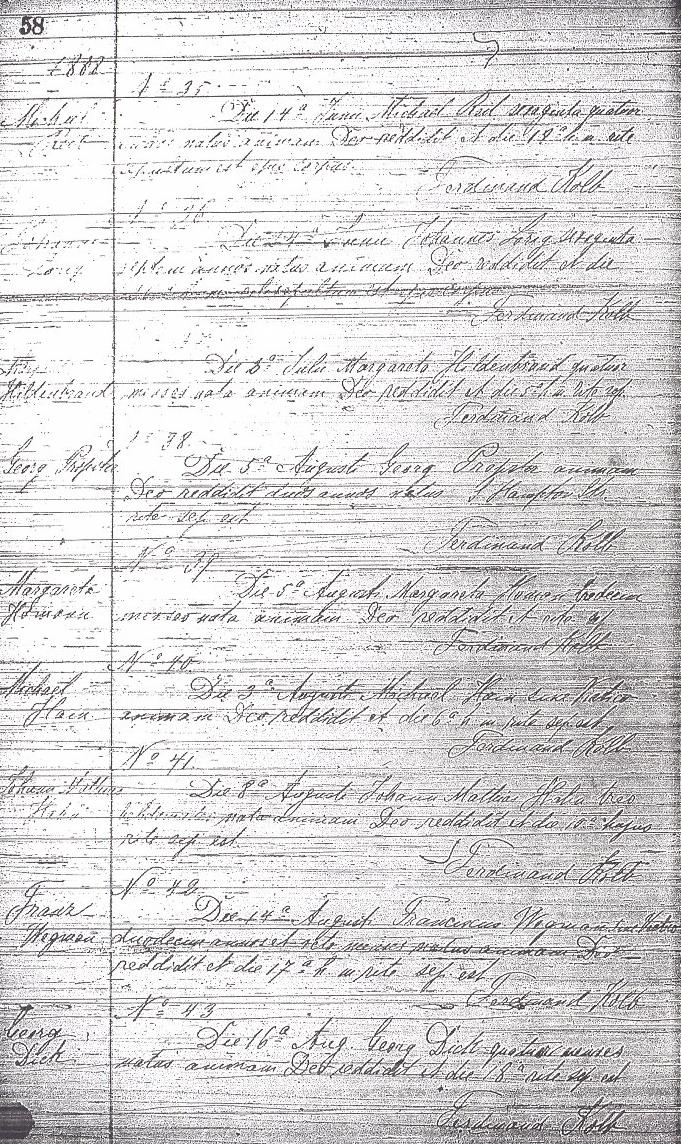 58
1882
No 35
Michael
Die 14a Junii Michael quatuor
annos natus animam Deo reddidit et die h. m. rite
est ejus corpus
Ferdinand Kolb
No 36
Die 24a Junii Johannes
septem annos natus animam Deo reddidit et die
sepultum est ejus corpus
Ferdinand Kolb
Hildenbrand
Die 2a Julii Margareta Hildenbrand quatuor
menses nata animam Deo reddidit et die h. m. rite sep.
Ferdinand Kolb
No 38
Georg Propster
Die 5a Augusti Georg Propster animam
Deo reddidit duos annos natus S Hampton Str.
rite sep. est
Ferdinand Kolb
No 39
Margareta
Homann
Die 5a Augusti Margareta Homan tredecim
menses nata animam Deo reddidit et rite
Ferdinand Kolb
No 40
Michael
Hain
Die 3a Augusti Michael Hain sine Viatico
animam Deo reddidit et die 6a h. m. rite sep. est
Ferdinand Kolb
No 41
Johann Mathias
Die 8a Augusti Johann Mathias tres
animam Deo reddidit et die 10a hujus
rite sep. est
Ferdinand Kolb
No 42
Franz
Wegman
Die 14a Augusti Franciscus Wegman sine Viatico
duodecim annos et menses natus animam Deo
reddidit et die 17a h. m. rite sep. est
Ferdinand Kolb
No 43
Georg
Dick
Die 16a Aug. Georg Dick quatuor menses
natus animam Deo reddidit et die 18a rite sep. est
Ferdinand Kolb